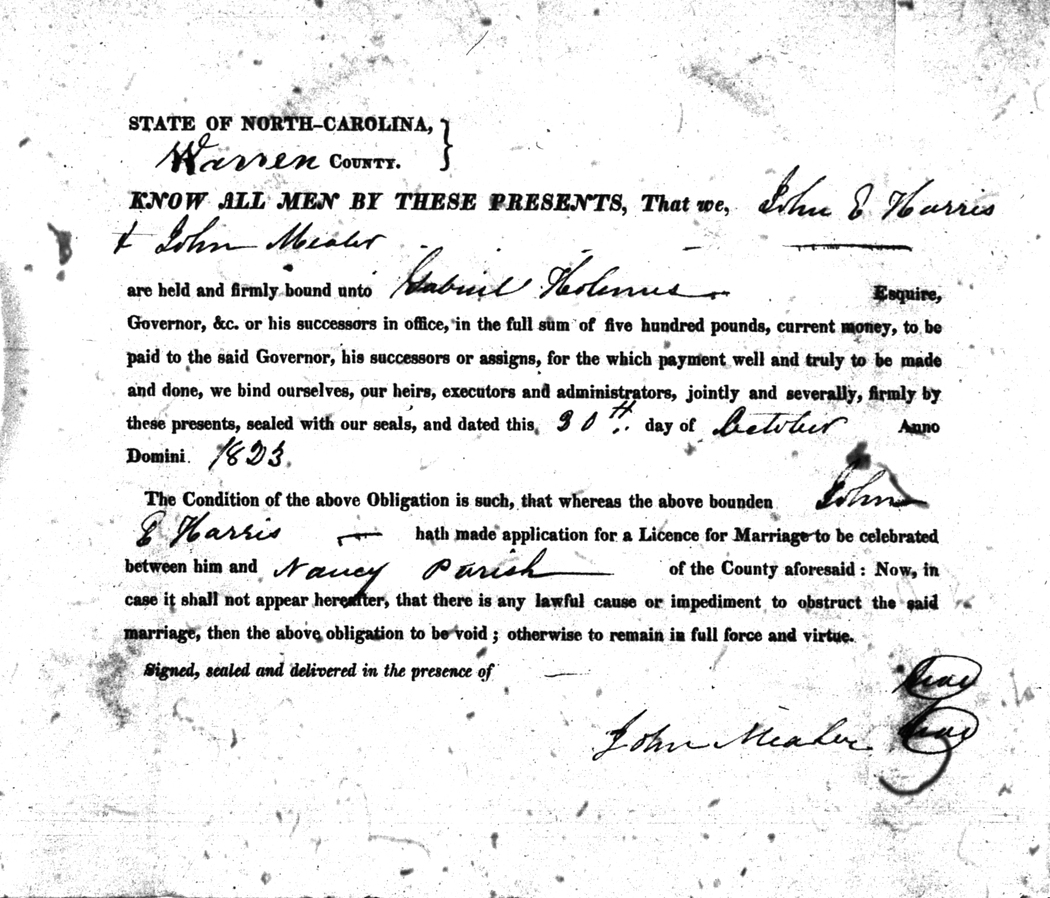 STATE OF NORTH-CAROLINA,
Warren COUNTY.
KNOW ALL MEN BY THESE PRESENTS, That we, John E Harris
& John Mealer
are held and firmly bound unto Gabriel Holmes Esquire,
Governor, &c. or his successors in office, in the full sum of five hundred pounds, current money, to be
paid to the said Governor, his successors or assigns, for the which payment well and truly to be made
and done, we bind ourselves, our heirs, executors and administrators, jointly and severally, firmly by
these presents, sealed with our seals, and dated this 30th day of October Anno
Domini 1823
The Condition of the above Obligation is such, that whereas the above bounden John
E Harris hath made application for a Licence for Marriage to be celebrated
between him and Nancy Parish of the County aforesaid : Now, in
case it shall not appear hereafter, that there is any lawful cause or impediment to obstruct the said
marriage, then the above obligation to be void ; otherwise to remain in full force and virtue.
Signed, sealed and delivered in the presence of
Seal
John Mealer Seal